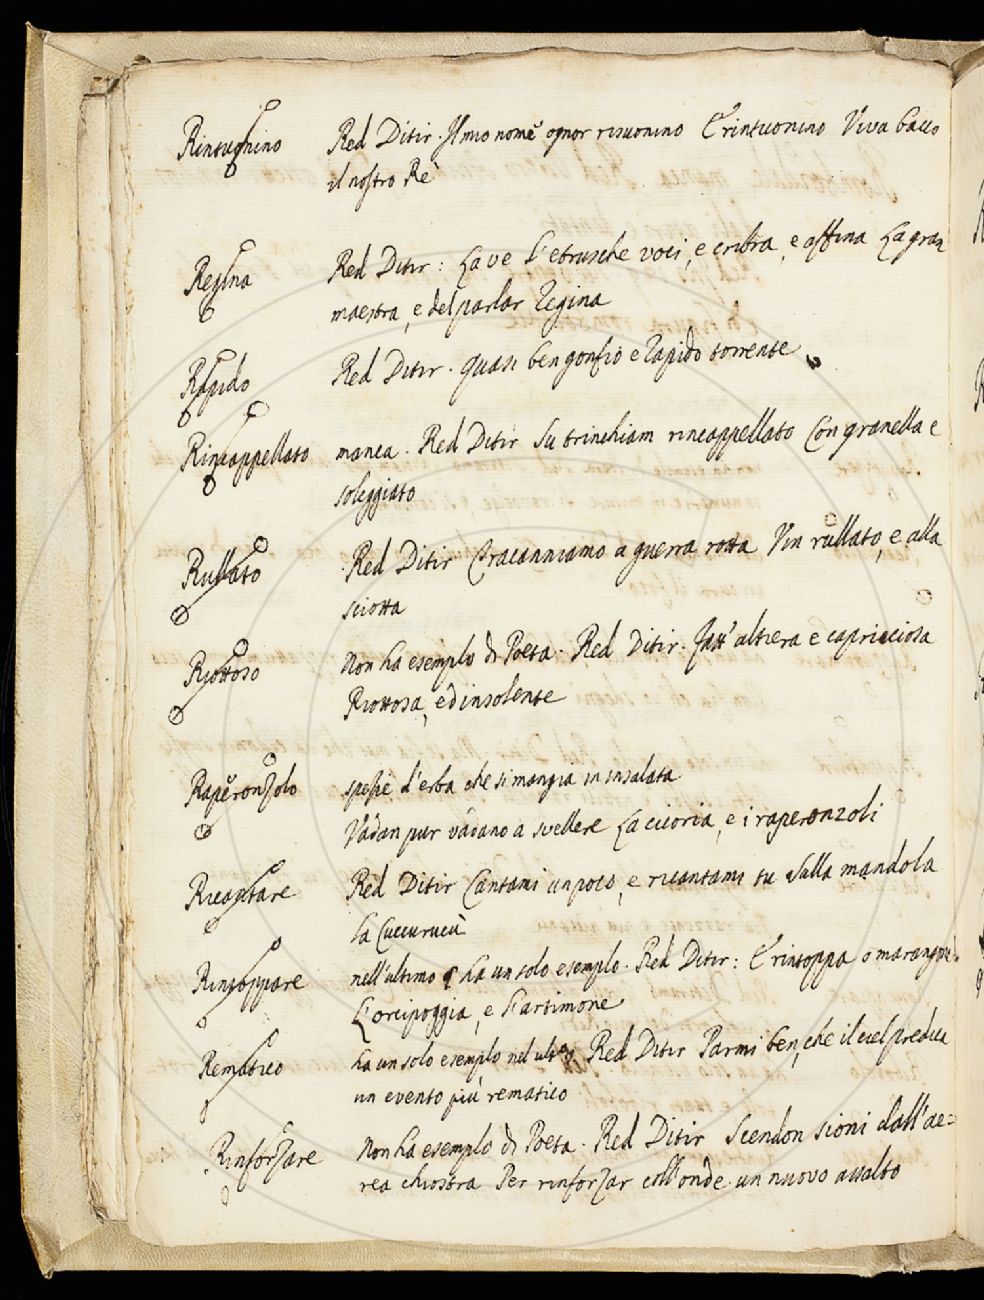 Rintuonino Red Ditir. Il mio nome ognor risuonino E rintuonino Viva bacco
il nostro Rè
Regina Red Ditir: La ve l'etrusche voci, e cribra, e affina La gran
maestra, e del parlar Regina
Rapido Red Ditir. quasi ben gonfio e rapido torrente
Rincappellato manca. Red Ditir Su trinchiam rincappellato Con granella e
soleggiato
Rullato Red Ditir Tracanniamo a guerra rotta Vin rullato, e alla
sciotta
Riottoso Non ha esemplo di Poeta. Red Ditir. Fatt'altiera e capricciosa
Riottosa, ed insolente
Raperonzolo spezie d'erba che si mangia in insalata
Vadan pur vadano a svellere La cicoria, e i raperonzoli
Ricantare Red Ditir Cantami un poco, e ricantami tu Sulla mandola
la Cuccurucù
Rintoppare nell'ultimo ha un solo esemplo. Red Ditir: E rintoppa o marangone
L'orcipoggia, e l'artimone
Rematico ha un solo esemplo nel Red Ditir Parmi ben, che il ciel predica
un evento più rematico
Rinforzare Non ha esemplo di Poeta. Red Ditir Scendon sioni dall'ae=
rea chiostra Per rinforzar coll'onde un nuovo assalto